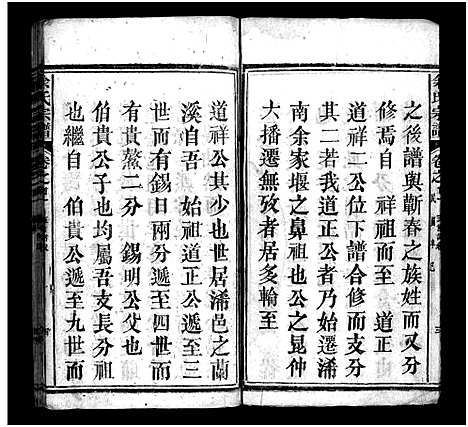 余氏宗譜
之後譜與蘄春之族姓而又分
修焉自 祥祖而 道正
道祥二公位下譜合修而支分
其二若我道正公者乃始遷浠
南余家堰之鼻祖也公之昆仲
大播遷無攷者居多輸至
道祥公其少也世居浠邑之蘭
溪自吾 始祖道正公遞至三
世而有錫日兩分遞至四世而
有貴鰲二分 錫明公父也
伯貴公子也均屬吾支長分祖
也繼自 伯貴公遞至九世而
余氏宗譜